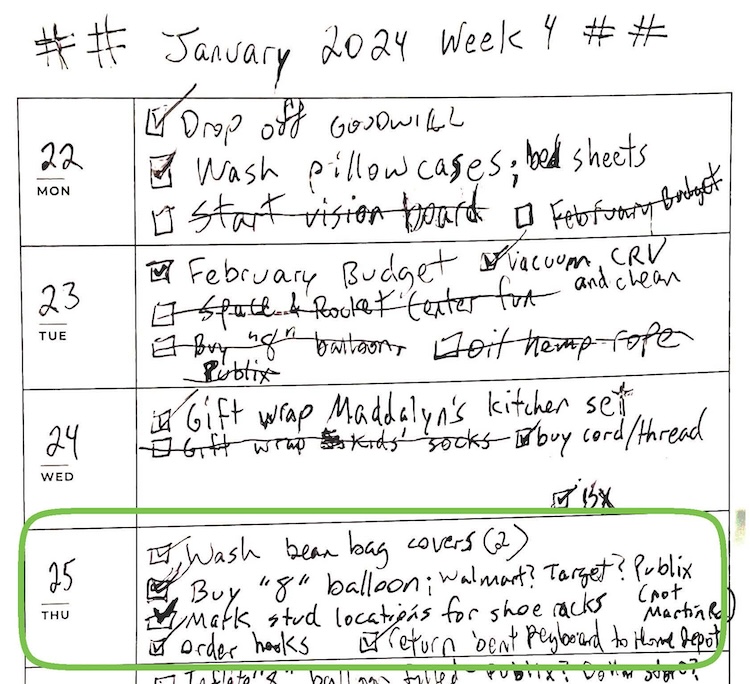 ## January 2024 Week 4 ##
22
MON
Drop off GOODWILL
Wash pillowcases; bed sheets
Start vision board February Budget
23
TUE
February Budget vacuum CRV
and clean
Space & Rocket Center fun
Buy "8" balloon, oil hemp rope
Publix
24
WED
Gift wrap Maddalyn's kitchen set
Gift wrap kids' socks buy cord/thread
25
THU
Wash bean bag covers (2)
Buy "8" balloon; Walmart? Target? Publix
(not
Mark stud locations for shoe racks Martin Rd)
Order hooks return bent Pegboard to Home Depot
Inflate "8" balloon filled Publix? Dollar